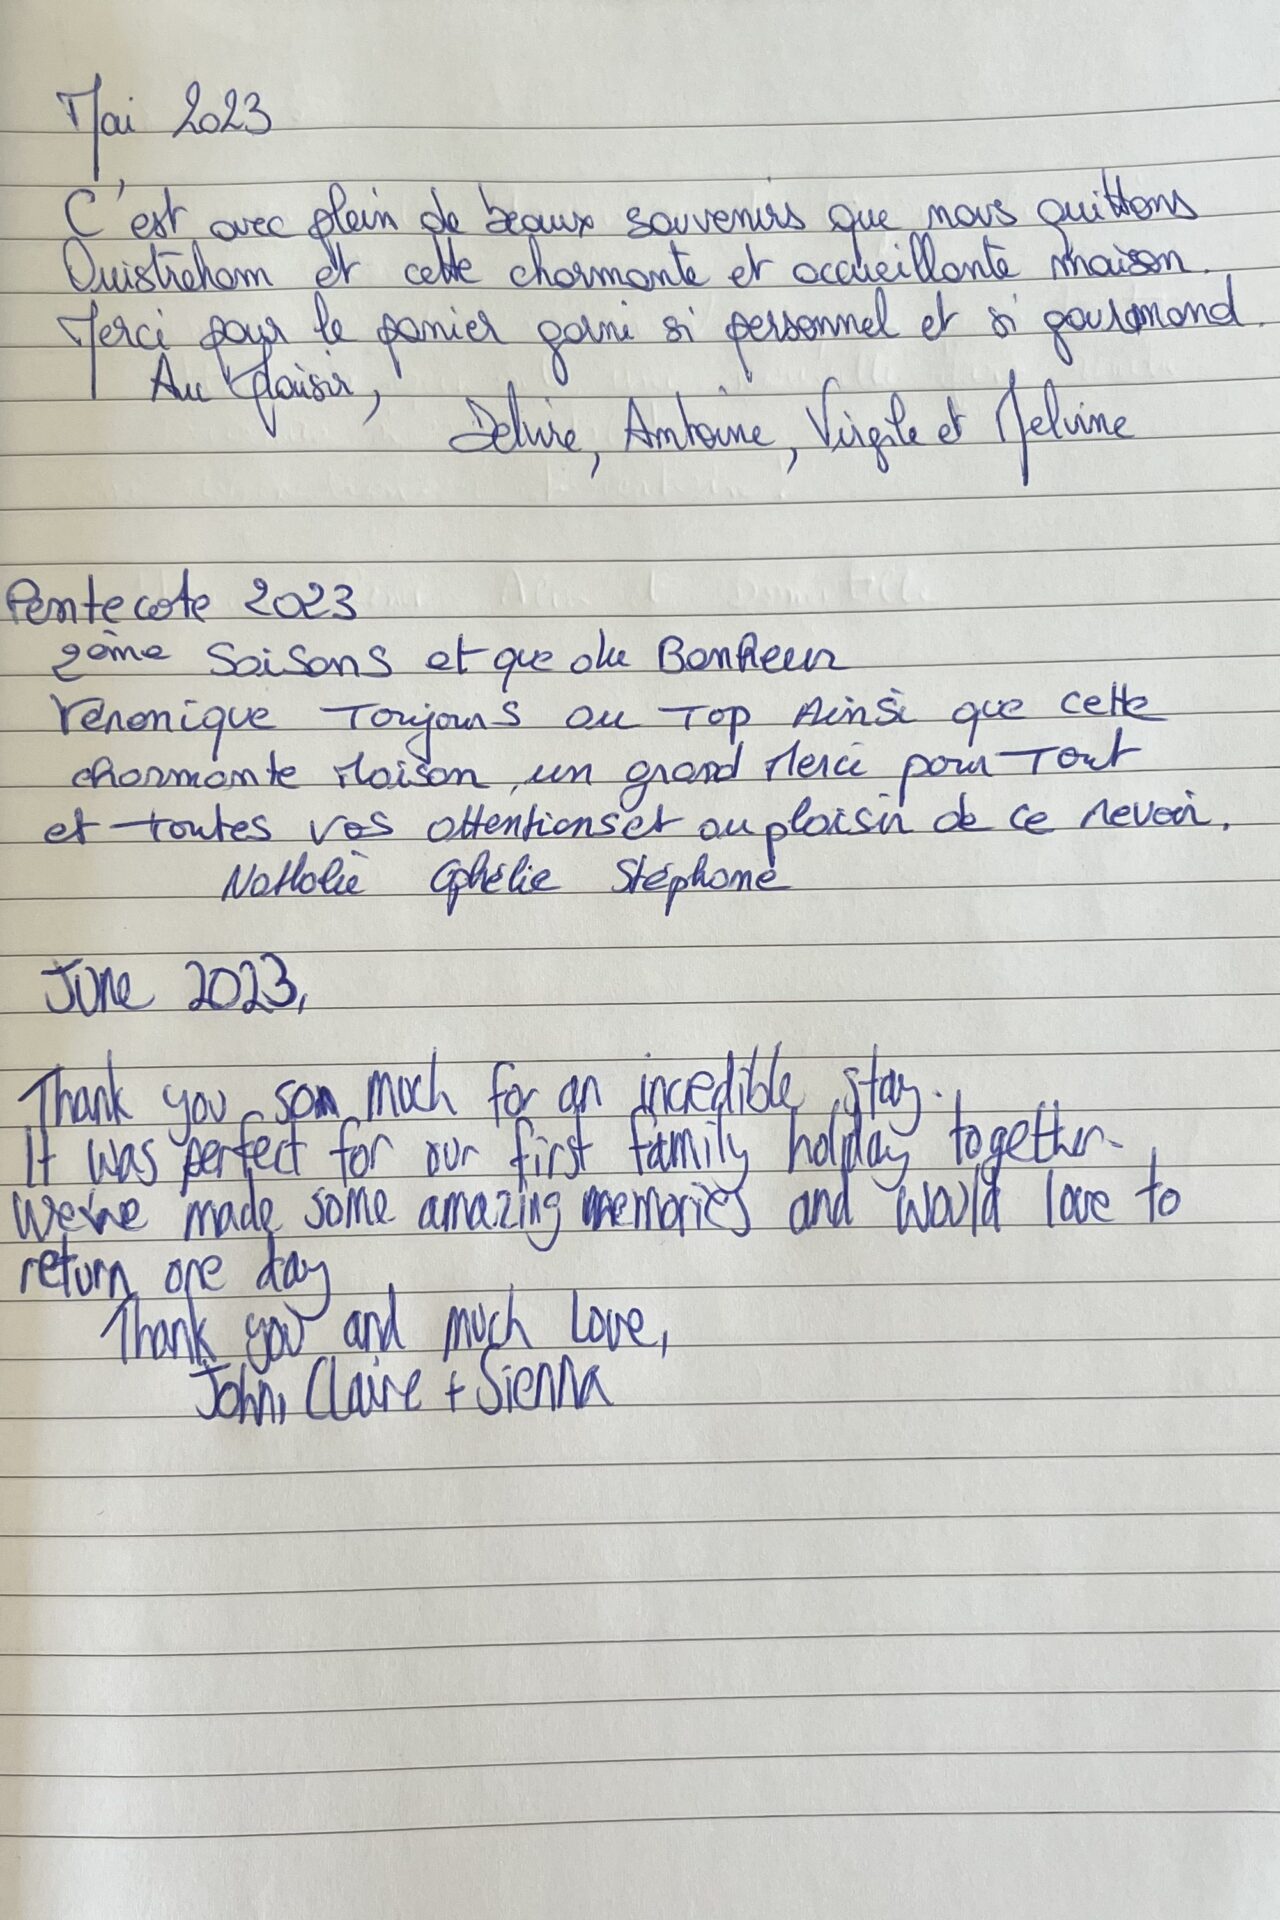 Mai 2023
C'est avec plein de beaux souvenirs que nous quittons
Ouistreham et cette charmante et accueillante maison.
Merci pour le panier garni si personnel et si gourmand.
Au plaisir,
Antoine, Virgile et Melvine
Pentecote 2023
2ème Saisons et que du Bonheur
Véronique Toujours au Top Ainsi que cette
charmante Maison, un grand Merci pour Tout
et toutes vos attentions et au plaisir de ce revoir.
Nathalie Ophélie Stéphane
June 2023,
Thank you so much for an incredible stay.
It was perfect for our first family holiday together.
We've made some amazing memories and would love to
return one day
Thank you and much love,
John, Claire + Sienna